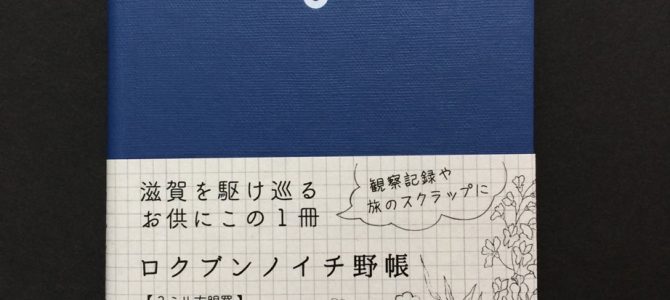 滋賀を駆け巡る
お供にこの1冊
観察記録や
旅のスクラップに
ロクブンノイチ野帳
【3ミリ方眼罫】